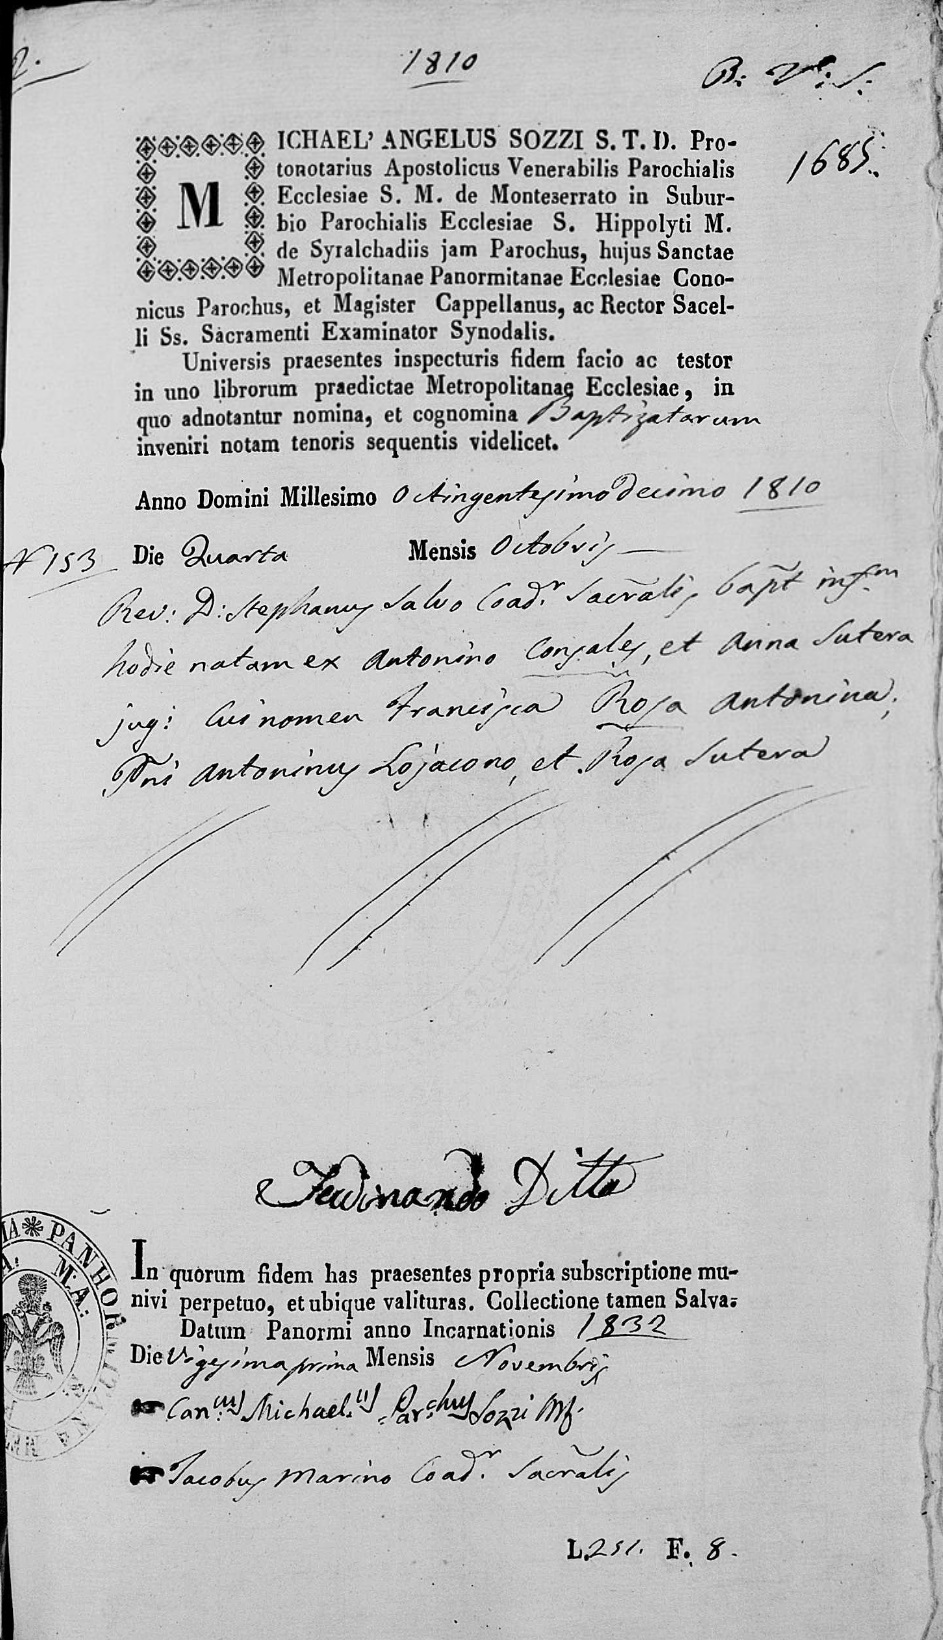 2.
1810
B: V: S:
1685.
MICHAEL' ANGELUS SOZZI S. T. D. Pro-
tonotarius Apostolicus Venerabilis Parochialis
Ecclesiae S. M. de Monteserrato in Subur-
bio Parochialis Ecclesiae S. Hippolyti M.
de Syralchadiis jam Parochus, hujus Sanctae
Metropolitanae Panormitanae Ecclesiae Cono-
nicus Parochus, et Magister Cappellanus, ac Rector Sacel-
li Ss. Sacramenti Examinator Synodalis.
Universis praesentes inspecturis fidem facio ac testor
in uno librorum praedictae Metropolitanae Ecclesiae, in
quo adnotantur nomina, et cognomina Baptizatarum
inveniri notam tenoris sequentis videlicet.
Anno Domini Millesimo Octingentesimo Decimo 1810
N 153 Die Quarta Mensis Octobris
Rev: D: Stephanus Salvo Coad.r Sacralis bapt inf.m
hodie natam ex Antonino Consales, et Anna Sutera
jug: Cui nomen Francisca Rosa Antonina;
Pni Antoninus Lojacono, et Rosa Sutera
Ferdinando Ditta
In quorum fidem has praesentes propria subscriptione mu-
nivi perpetuo, et ubique valituras. Collectione tamen Salva.
Datum Panormi anno Incarnationis 1832
Die Vigesima prima Mensis Novembris
Can.cus Michael Par.chus Sozzi
Jacobus Marino Coad.r Sacralis
L. 251. F. 8.
PANHORMITANA
M.A.